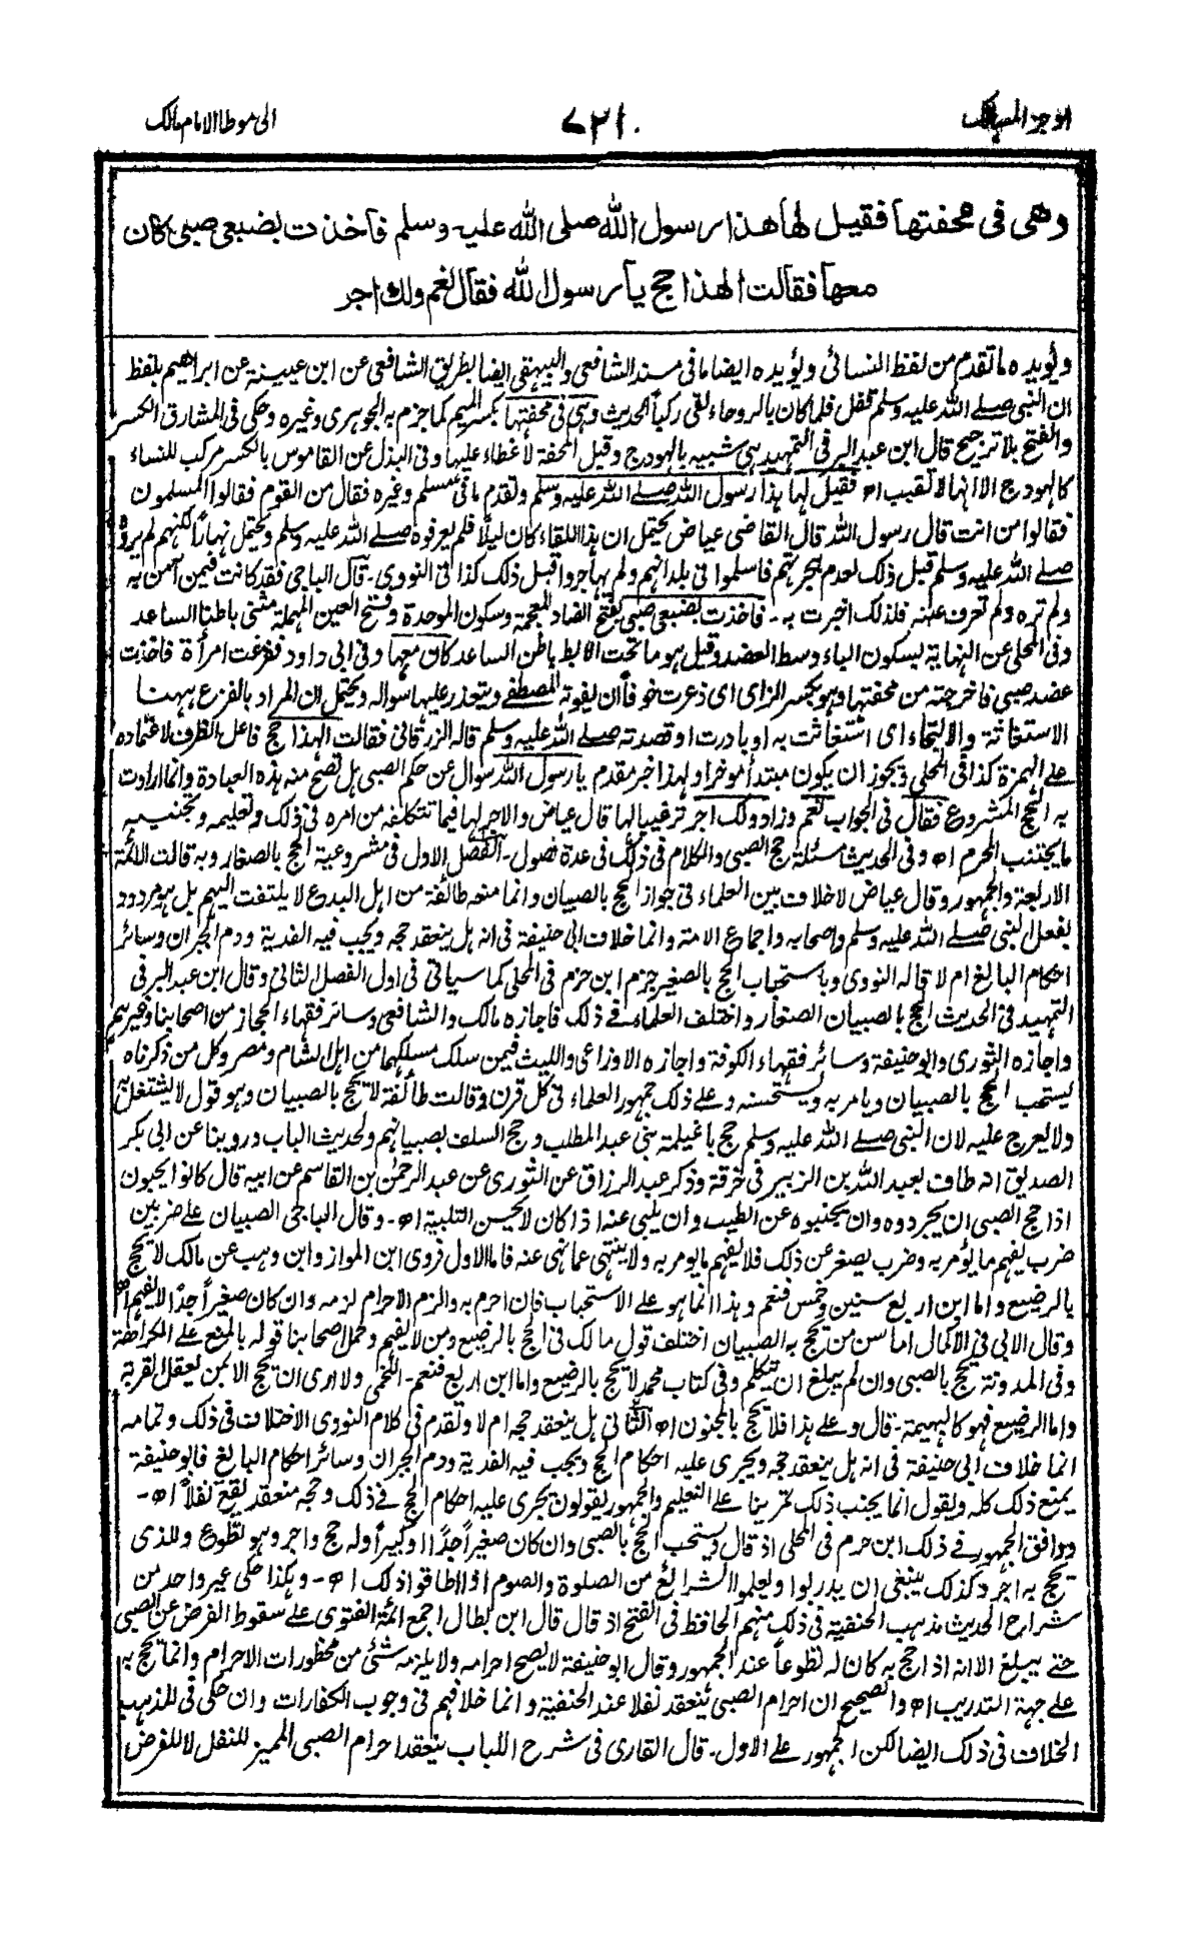 اوجز المسالك
٧٢١
الى موطا الامام مالك
وهى فى محفتها فقيل لها هذا رسول الله صلى الله عليه وسلم فاخذت بضبعى صبى كان
معها فقالت الهذا حج يا رسول الله فقال نعم ولك اجر
ويؤيده ما تقدم من لفظ النسائى ويؤيده ايضا ما فى مسند الشافعى والبيهقى ايضا بطريق الشافعى عن ابن عيينة عن ابراهيم بلفظ
ان النبى صلے الله عليه وسلم قفل فلما كان بالروحاء لقى ركبا الحديث وهى فى محفتها بكسر الميم كما جزم به الجوهرى وغيره وحكى فى المشارق الكسر
والفتح بلا ترجيح قال ابن عبد البر فى التمهيد هى شبيه بالهودج وقيل المحفة لا غطاء عليها وفى البذل عن القاموس بالكسر مركب للنساء
كالهودج الا انها لا تقبب اھ فقيل لها هذا رسول الله صلے الله عليه وسلم وتقدم ما فى مسلم وغيره فقال من القوم فقالوا المسلمون
فقالوا من انت قال رسول الله قال القاضى عياض يحتمل ان هذا اللقاء كان ليلا فلم يعرفوه صلے الله عليه وسلم ويحتمل نهارا لكنهم لم يروه
صلے الله عليه وسلم قبل ذلك لعدم هجرتهم فاسلموا فى بلدانهم ولم يهاجروا قبل ذلك كذا فى النووى۔ قال الباجى فقد كانت فيمن آمن به
ولم تره ولم تعرف عينه فلذلك اخبرت به۔ فاخذت بضبعى صبى بفتح الضاد المعجمة وسكون الموحدة وفتح العين المهملة مثنى باطنا الساعد
وفى المحلى عن النهاية بسكون الباء وسط العضد وقيل هو ما تحت الابط باطن الساعد كان معها وفى ابى داود ففزعت امرأة فاخذت
عضد صبى فاخرجته من محفتها وهو بكسر الزاى اى ذعرت خوفا ان يفوته المصطفى ويتعذر عليها سواله ويحتمل ان المراد بالفزع ههنا
الاستغاثة والالتجاء اى استغاثت به او بادرت او قصدته صلے الله عليه وسلم قاله الزرقانى فقالت الهذا حج فاعل الظرف لاعتماده
على الهمزة كذا فى المحلى ويجوز ان يكون مبتدأ موخرا ولهذا خبر مقدم يا رسول الله سوال عن حكم الصبى هل تصح منه هذه العبادة وانما ارادت
به الحج المشروع فقال فى الجواب نعم وزاد ولك اجر ترغيبا لها قال عياض والاجر لها فيما تتكلفه من امره فى ذلك وتعليمه وتجنيبه
ما يجتنب المحرم اھ وفى الحديث مسئلة حج الصبى والكلام فى ذلك فى عدة فصول۔ الفصل الاول فى مشروعية الحج بالصغار وبه قالت الائمة
الاربعة والجمهور وقال عياض لا خلاف بين العلماء فى جواز الحج بالصبيان وانما منعه طائفة من اهل البدع لا يلتفت اليهم بل هو مردود
بفعل النبى صلے الله عليه وسلم واصحابه واجماع الامة وانما خلاف ابى حنيفة فى انه هل ينعقد حجه ويجب فيه الفدية ودم الجبران وسائر
احكام البالغ ام لا قاله النووى وباستحباب الحج بالصغير جزم ابن حزم فى المحلى كما سياتى فى اول الفصل الثانى وقال ابن عبد البر فى
التمهيد فى الحديث الحج بالصبيان الصغار واختلف العلماء فى ذلك فاجازه مالك والشافعى وسائر فقهاء الحجاز من اصحابنا وغيرهم
واجازه الثورى وابو حنيفة وسائر فقهاء الكوفة واجازه الاوزاعى والليث فيمن سلك مسلكهما من اهل الشام ومصر وكل من ذكرناه
يستحب الحج بالصبيان ويامر به ويستحسنه وعلى ذلك جمهور العلماء فى كل قرن وقالت طائفة لا يحج بالصبيان وهو قول لا يشتغل به
ولا يعرج عليه لان النبى صلے الله عليه وسلم حج باغيلمة بنى عبد المطلب وحج السلف بصبيانهم ولحديث الباب وروينا عن ابى بكر
الصديق انه طاف بعبد الله بن الزبير فى خرقة وذكر عبد الرزاق عن الثورى عن عبد الرحمٰن بن القاسم عن ابيه قال كانوا يحبون
اذا حج الصبى ان يجردوه وان يجنبوه عن الطيب وان يلبى عنه اذا كان لا يحسن التلبية اھ۔ وقال الباجى الصبيان على ضربين
ضرب يفهم ما يؤمر به وضرب يصغر عن ذلك فلا يفهم ما يومر به ولا ينتهى عما نهى عنه فاما الاول فروى ابن المواز وابن وهب عن مالك لا يحج
بالرضيع واما ابن اربع سنين وخمس فنعم وهذا انما هو على الاستحباب فان احرم به والزم الاحرام لزمه وان كان صغيراً جدا لا يفهم اھ
وقال الابى فى الاكمال اما سن من يحج به الصبيان اختلف قول مالك فى الحج بالرضيع ومن لا يفهم وحمل اصحابنا قوله بالمنع على الكراهة
وفى المدونة يحج بالصبى وان لم يبلغ ان يتكلم وفى كتاب محمد لا يحج بالرضيع واما ابن اربع فنعم۔ اللخمى ولا ارى ان يحج الا بمن يعقل القربة
واما الرضيع فهو كالبهيمة۔ قال وعلى هذا فلا يحج بالمجنون اھ الثانى هل ينعقد حجه ام لا وتقدم فى كلام النووى الاختلاف فى ذلك وتمامه
انما خلاف ابى حنيفة فى انه هل ينعقد حجه ويجرى عليه احكام الحج ويجب فيه الفدية ودم الجبران وسائر احكام البالغ فابو حنيفة
يمنع ذلك كله ويقول انما يجنب ذلك تمرينا على التعليم والجمهور يقولون تجرى عليه احكام الحج فى ذلك وحجه منعقد يقع نفلا اھ۔
ووافق الجمهور فى ذلك ابن حزم فى المحلى اذ قال ويستحب الحج بالصبى وان كان صغيراً جدا او كبيراً وله حج واجر وهو تطوع وللذى
يحج به اجر وكذلك ينبغى ان يدربوا ويعلموا الشرائع من الصلوة والصوم اذا اطاقوا ذلك اھ۔ وهكذا حكى غير واحد من
شراح الحديث مذهب الحنفية فى ذلك منهم الحافظ فى الفتح اذ قال قال ابن بطال اجمع ائمة الفتوى على سقوط الفرض عن الصبى
حتى يبلغ الا انه اذا حج به كان له تطوعاً عند الجمهور وقال ابو حنيفة لا يصح احرامه ولا يلزمه شئ من محظورات الاحرام وانما يحج به
على جهة التدريب اھ والصحيح ان احرام الصبى ينعقد نفلا عند الحنفية وانما خلافهم فى وجوب الكفارات وان حكى فى المذهب
الخلاف فى ذلك ايضا لكن الجمهور على الاول۔ قال القارى فى شرح اللباب ينعقد احرام الصبى المميز للنفل لا للفرض